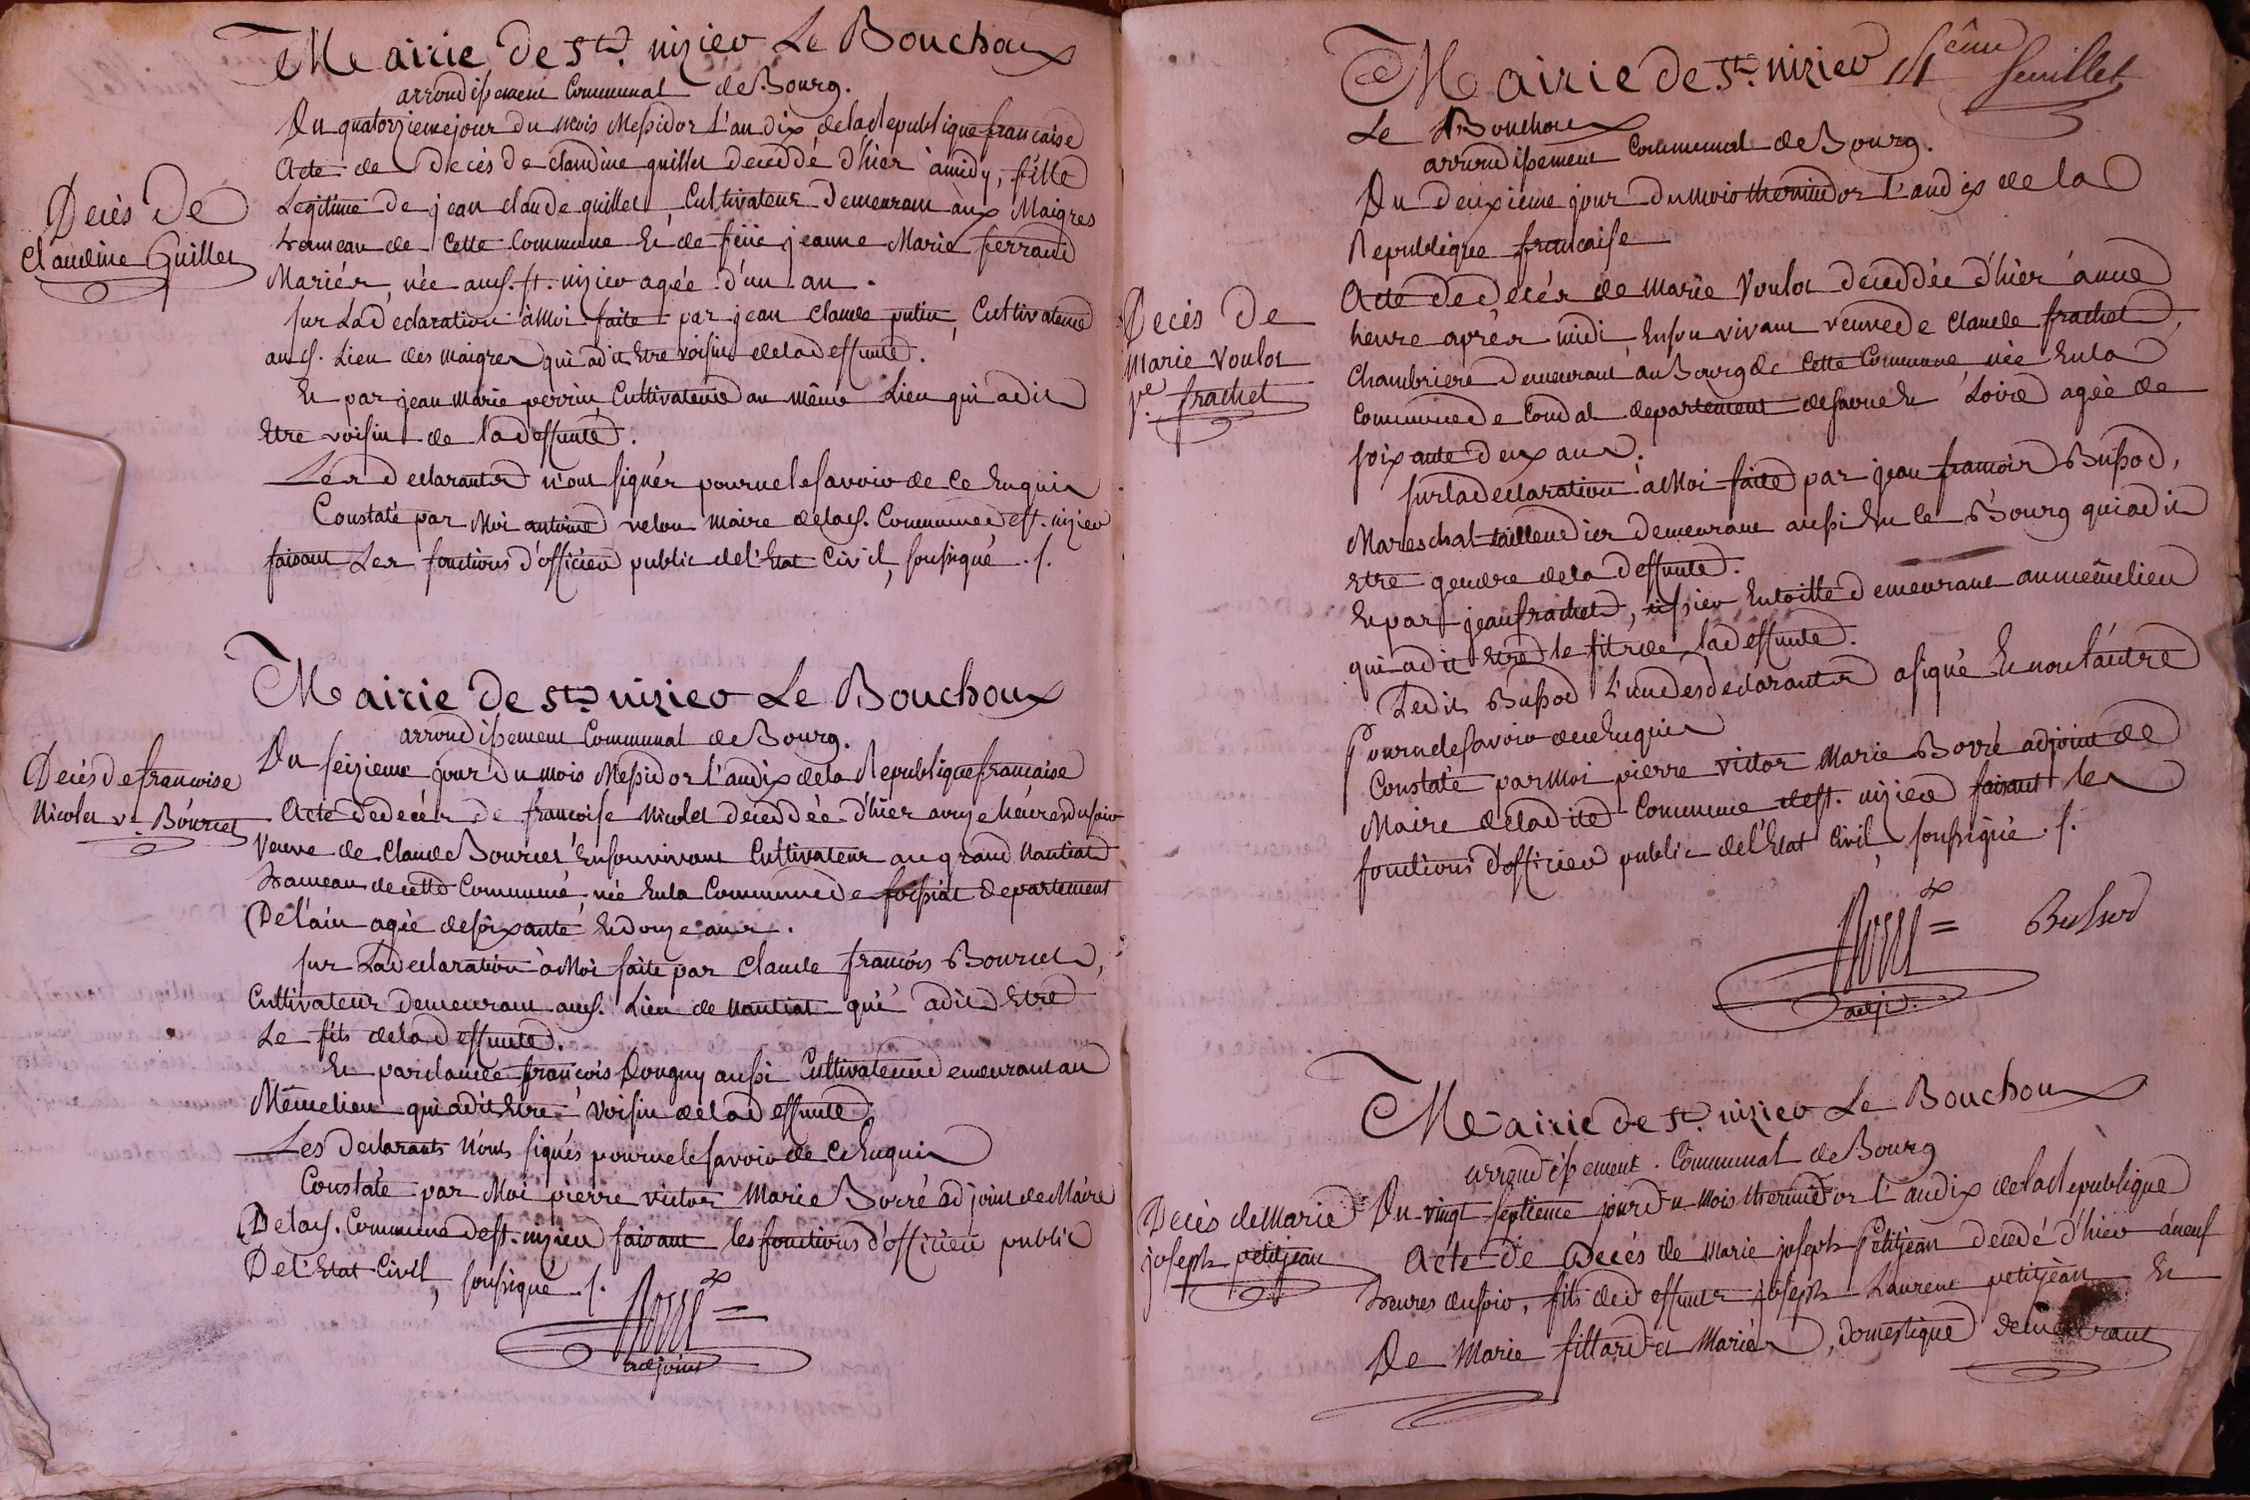 Mairie de St. nizier Le Bouchoux
arrondissement Communal de Bourg.
Du quatorzieme jour du mois Messidor L'an dix de la Republique francaise
Decès de
Claudine Guillet
Acte de Decès de claudine guillet deceddé d'hier à midy, fille
Legitime de jean claude guillet, Cultivateur Demeurant àux Maigres
hameau de cette Commune Et de feüe jeanne Marie ferrand
Mariés, née aud. st. nizier agée d'un an.
sur La Declaration à Moi faite par jean Claude putin, Cultivateur
aud. Lieu des Maigres qui a dit Etre voisin de la deffunte.
Et par jean Marie perrin Cultivateur au même Lieu qui a dit
Etre voisin de la deffunte.
Les declarants n'ont signés pour ne le savoir de ce Enquis
Constaté par Moi antoine velon maire de lad. Commune de st. nizier
faisant Les fonctions d'officier public de l'Etat Civil, soussigné ./.
Mairie de St. nizier Le Bouchoux
arrondissement Communal de Bourg.
Decès de francoise
Nicolet ve. Bourcet
Du seizieme jour du mois Messidor L'an dix de la Republique francaise
Acte de decés de francoise Nicolet deceddée d'hier a onze heures du soir
Veuve de Claude Bourcet En son vivant Cultivateur au grand Nantiat
hameau de cette Commune, née En la Commune de foissiat departement
De l'ain agée de soixante Et douze ans.
sur La declaration à Moi faite par Claude françois Bourcet,
Cultivateur demeurant aud. Lieu de Nantiat qui a dit Etre
Le fils de la deffunte.
Et par claude françois Dougny aussi Cultivateur demeurant au
Même lieu qui a dit Etre voisin de la deffunte.
Les declarants n'onts signés pour ne le savoir de ce Enquis
Constaté par Moi pierre victor Marie Borré adjoint de Maire
De lad. Commune de st. nizier faisant les fonctions d'officier public
De l'Etat Civil, soussigné ./.
Borré
adjoint
Mairie de St. nizier
4ème feuillet
Le Bouchoux
arrondissement Communal de Bourg.
Du deuxieme jour du mois thermidor L'an dix de la
Republique francaise
Decès de
Marie Voulot
ve. frachet
Acte de decés de Marie Voulot deceddée d'hier à une
heure aprés midi, En son vivant veuve de Claude frachet,
Chambriere Demeurant au Bourg de Cette Commune, née En la
Commune de Condal departement de saone Et Loire agée de
soixante deux ans.
sur la declaration à Moi faite par jean francois Bussod,
Mareschal taillendier demeurant aussi En le Bourg qui a dit
etre gendre de la deffunte.
Et par jean frachet, tissier En toille demeurant au même lieu
qui a dit Etre le fils de la deffunte.
Ledit Bussod L'un des declarants a signé Et non l'autre
Pour ne le savoir de ce Enquis
Constaté par Moi pierre victor Marie Borré adjoint de
Maire de la dite Commune de st. nizier faisant les
fonctions d'officier public de l'Etat Civil, soussigné ./.
Borré Bussod
adj.
Mairie de St. nizier Le Bouchoux
arrondissement Communal de Bourg
Decès de Marie
joseph petitjean
Du vingt septieme jour du mois thermidor L'an dix de la Republique
Acte de Decés de Marie joseph petitjean decedé d'hier à neuf
heures du soir, fils de deffunts joseph Laurent petitjean Et
De Marie fillard Mariés, domestique demeurant